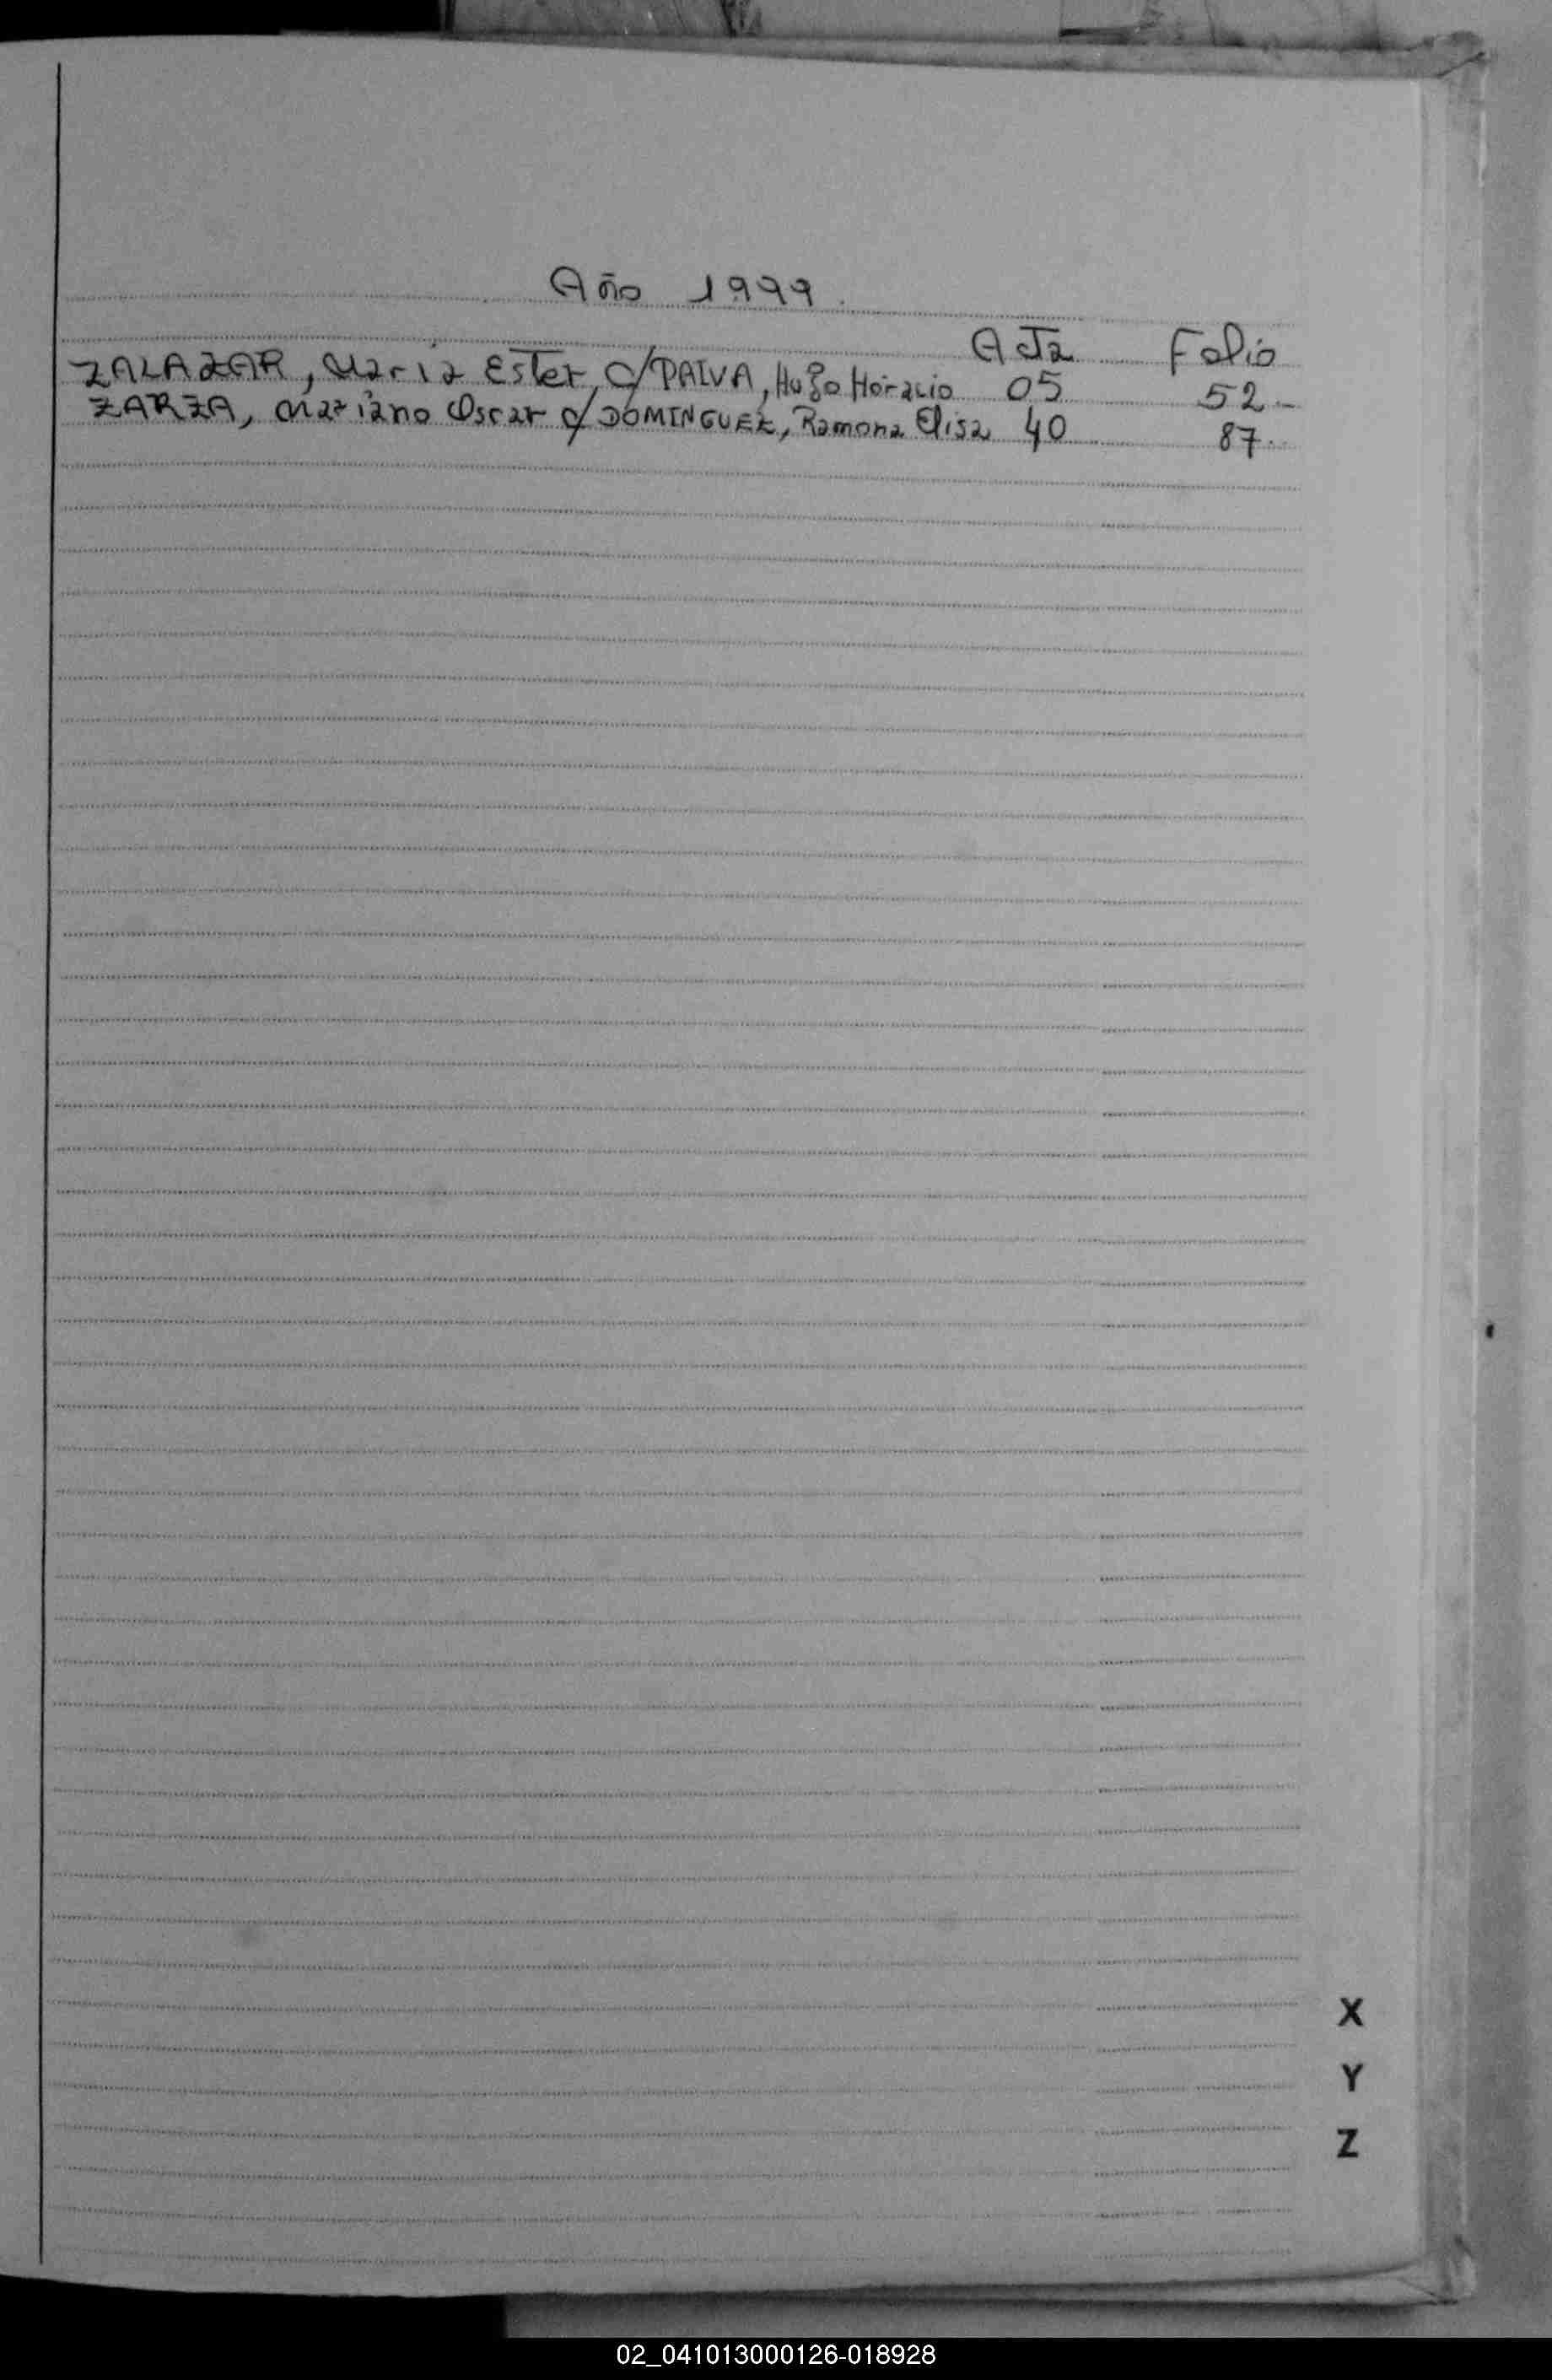 Año 1999.
Acta Folio
ZALAZAR, María Ester, c/PAIVA, Hugo Horacio 05 52.-
ZARZA, Mariano Oscar c/DOMINGUEZ, Ramona Elisa 40 87.
X
Y
Z
02_041013000126-018928